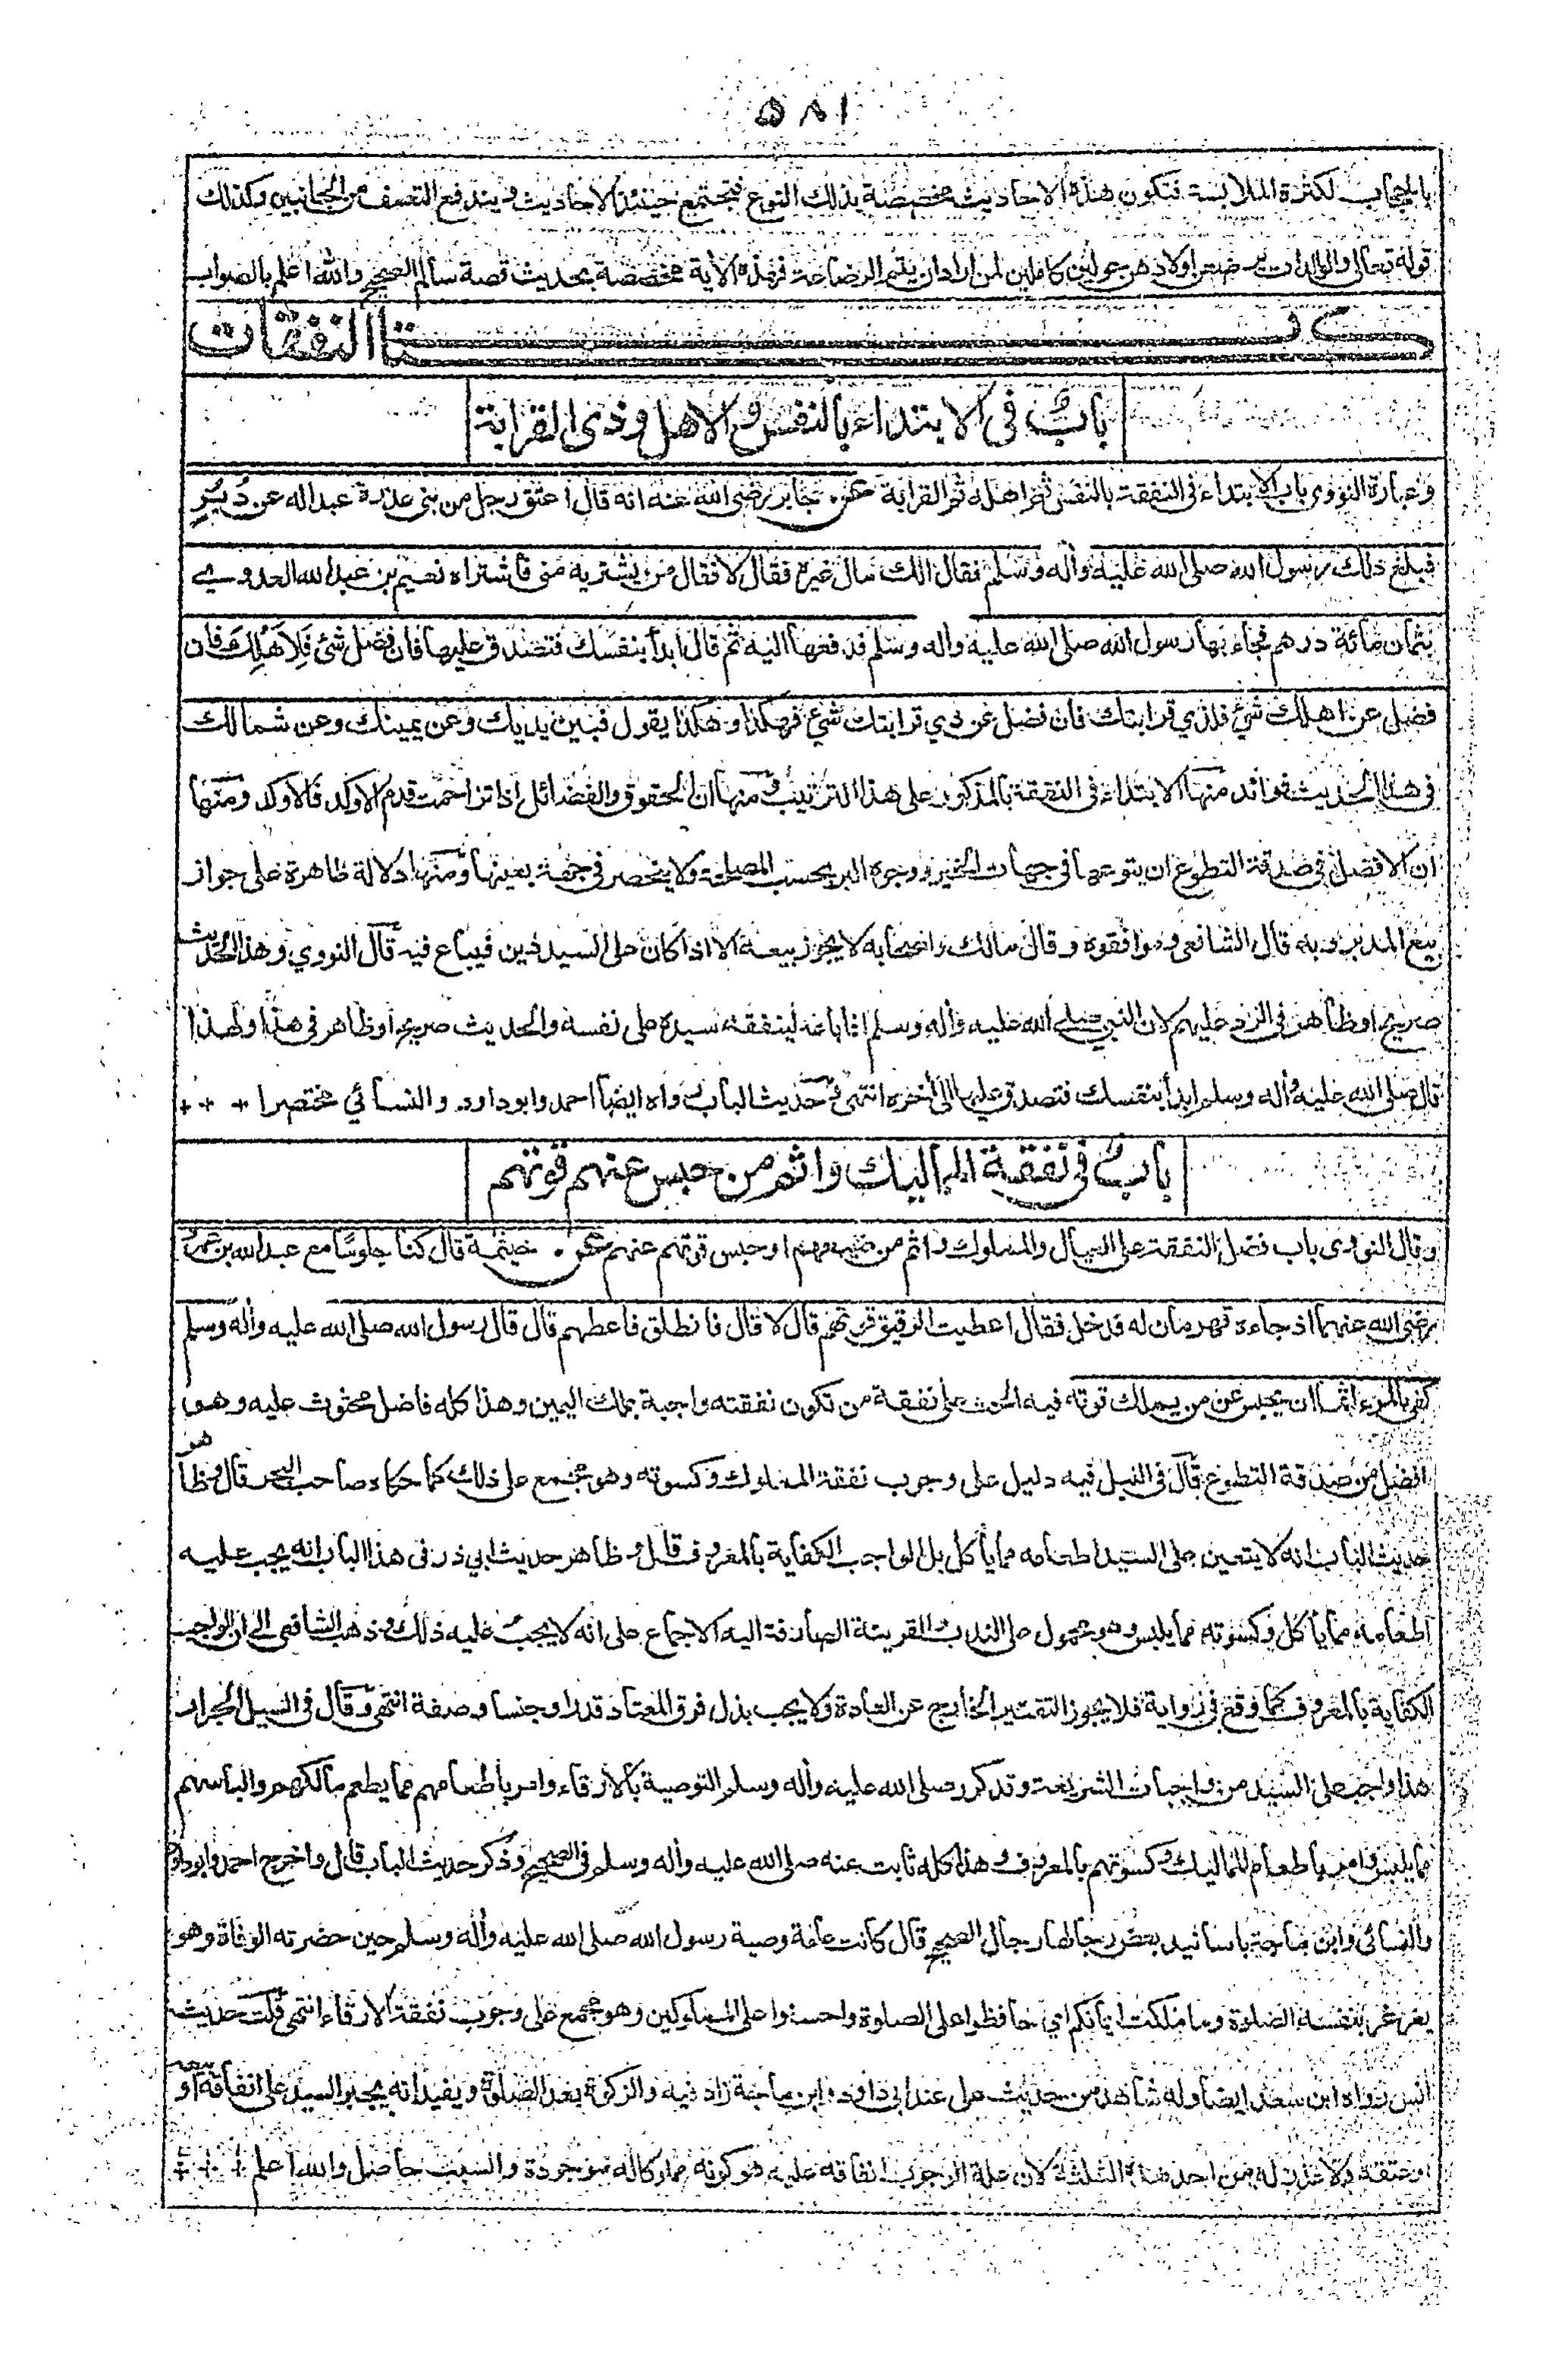 ٥٨١
بالحجاب لكثرة الملابسة فتكون هذه الاحاديث مخصصة بذلك النوع فتجتمع حينئذ الاحاديث ويندفع التعسف من الجانبين وكذلك
قوله تعالى والوالدات يرضعن اولادهن حولين كاملين لمن اراد ان يتم الرضاعة فهذه الاية مخصصة بحديث قصة سالم الصحيح والله اعلم بالصواب
كتاب النفقات
باب في الابتداء بالنفس والاهل وذى القرابة
وعبارة النووى باب الابتداء فى النفقة بالنفس ثم اهله ثم القرابة عن جابر رضى الله عنه انه قال اعتق رجل من بنى عذرة عبدا له عن دُبُرٍ
فبلغ ذلك رسول الله صلى الله عليه وأله وسلم فقال الك مال غيره فقال لا فقال من يشتريه منى فاشتراه نعيم بن عبد الله العدوي
بثمان مائة درهم فجاء بها رسول الله صلى الله عليه وأله وسلم فدفعها اليه ثم قال ابدأ بنفسك فتصدق عليها فان فضل شئ فَلِاَهْلِكَ فان
فضل عن اهلك شئ فلذي قرابتك فان فضل عن ذي قرابتك شئ فهكذا وهكذا يقول فبين يديك وعن يمينك وعن شمالك
فى هذا الحديث فوائد منها الابتداء فى النفقة بالمذكور على هذا الترتيب ومنها ان الحقوق والفضائل اذا تزاحمت قدم الاوكد فالاوكد ومنها
ان الافضل فى صدقة التطوع ان ينوعها فى جهات الخير ووجوه البر بحسب المصلحة ولا ينحصر فى جهة بعينها ومنها دلالة ظاهرة على جواز
بيع المدبر وبه قال الشافعى وموافقوه وقال مالك واصحابه لا يجوز بيعه الا اذا كان على السيد دين فيباع فيه قال النووي وهذا الحديث
صريح او ظاهر فى الرد عليهم لان النبي صلى الله عليه وأله وسلم انما باعه لينفقه سيده على نفسه والحديث صريح او ظاهر فى هذا ولهذا
قال صلى الله عليه وأله وسلم ابدأ بنفسك فتصدق عليها الى أخره انتهى وحديث الباب رواه ايضا احمد وابو داود والنسائي مختصرا + + +
باب في نفقة المماليك واثم من حبس عنهم قوتهم
وقال النووى باب فضل النفقة على العيال والمملوك واثم من ضيعهم او حبس قوتهم عنهم عن خيثمة قال كنا جلوسًا مع عبد الله بن عمرو
رضى الله عنهما اذ جاءه قهرمان له فدخل فقال اعطيت الرقيق قوتهم قال لا قال فانطلق فاعطهم قال قال رسول الله صلى الله عليه وأله وسلم
كفى بالمرء اثما ان يحبس عمن يملك قوته فيه الحث على نفقة من تكون نفقته واجبة بملك اليمين وهذا كله فاضل محثوث عليه وهو
افضل من صدقة التطوع قال فى النيل فيه دليل على وجوب نفقة المملوك وكسوته وهو مجمع على ذلك كما حكاه صاحب البحر قال وظاهر
حديث الباب انه لا يتعين على السيد اطعامه مما يأكل بل الواجب الكفاية بالمعروف قال وظاهر حديث ابي ذر فى هذا الباب انه يجب عليه
اطعامه مما يأكل وكسوته مما يلبس وهو محمول على الندب والقرينة الصارفة اليه الاجماع على انه لا يجب عليه ذلك وذهب الشافعى الى ان الواجب
الكفاية بالمعروف كما وقع فى رواية فلا يجوز التقتير الخارج عن العادة ولا يجب بذل فوق المعتاد قدرا وجنسا وصفة انتهى وقال فى السيل الجرار
هذا واجب على السيد من واجبات الشريعة وقد كرر صلى الله عليه وأله وسلم التوصية بالارقاء وامر باطعامهم مما يطعم مالكهم والباسهم
مما يلبس وامر باطعام المماليك وكسوتهم بالمعروف وهذا كله ثابت عنه صلى الله عليه وأله وسلم فى الصحيح وذكر حديث الباب قال واخرج احمد وابو داود
والنسائى وابن ماجة باسانيد بعض رجالها رجال الصحيح قال كانت عامة وصية رسول الله صلى الله عليه وأله وسلم حين حضرته الوفاة وهو
يغرغر بنفسه الصلوة وما ملكت ايمانكم اي حافظوا على الصلوة واحسنوا على المملوكين وهو مجمع على وجوب نفقة الارقاء انتهى قلت حديث
انس رواه ابن سعد ايضا وله شاهد من حديث على عند ابى داود وابن ماجة زاد فيه والزكوة بعد الصلوة ويفيد انه يجبر السيد على انفاقه او بيعه
او عتقه ولا عذر له من احد هذه الثلثة لان علة الوجوب انفاقه عليه هو كونه مملوكا له موجودة والسبب حاصل والله اعلم + + +